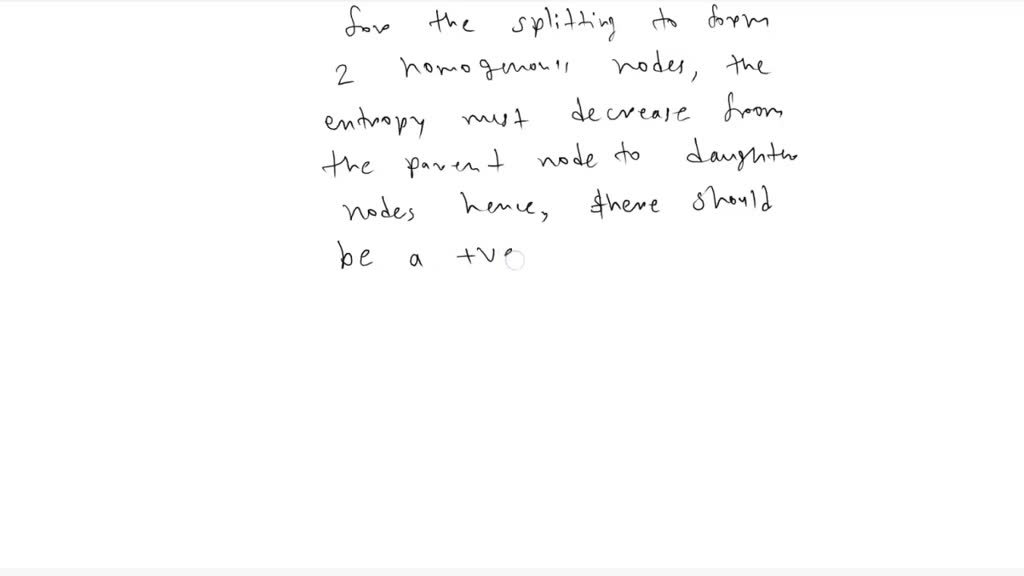 for the splitting to form
2 homogenous nodes, the
entropy must decrease from
the parent node to daughter
nodes hence, there should
be a +ve